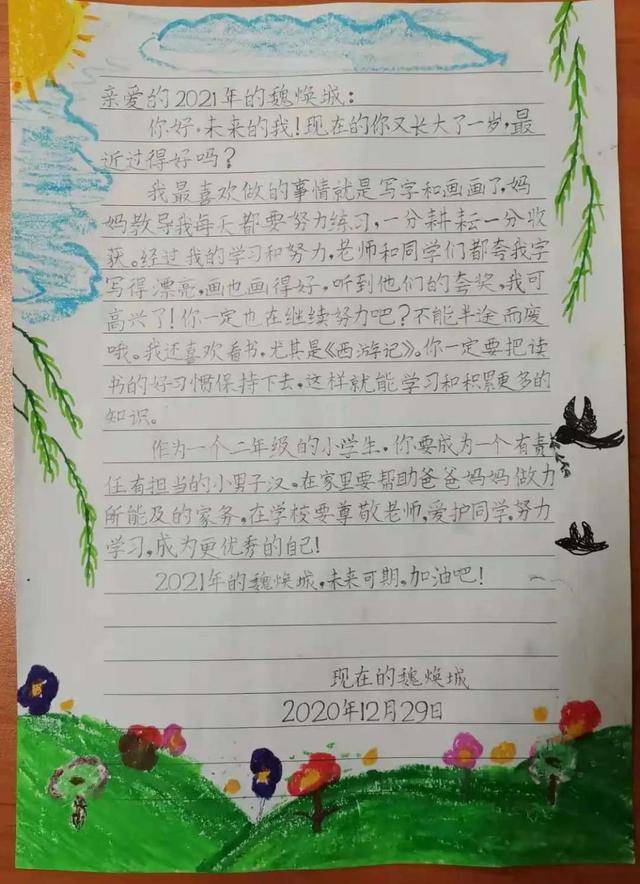 亲爱的2021年的魏焕城：
你好，未来的我！现在的你又长大了一岁，最
近过得好吗？
我最喜欢做的事情就是写字和画画了，妈
妈教导我每天都要努力练习，一分耕耘一分收
获。经过我的学习和努力，老师和同学们都夸我字
写得漂亮，画也画得好，听到他们的夸奖，我可
高兴了！你一定也在继续努力吧？不能半途而废
哦。我还喜欢看书，尤其是《西游记》。你一定要把读
书的好习惯保持下去，这样就能学习和积累更多的
知识。
作为一个二年级的小学生，你要成为一个有责
任有担当的小男子汉。在家里要帮助爸爸妈妈做力
所能及的家务，在学校要尊敬老师，爱护同学，努力
学习，成为更优秀的自己！
2021年的魏焕城，未来可期。加油吧！
现在的魏焕城
2020年12月29日